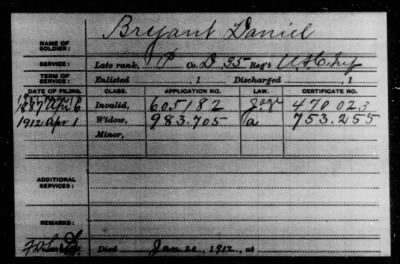 Bryant Daniel
NAME OF SOLDIER:
SERVICE: Late rank, P Co. D, 35 Reg't U.S.C. Inf
TERM OF SERVICE: Enlisted , 1 Discharged , 1
DATE OF FILING. CLASS. APPLICATION NO. LAW. CERTIFICATE NO.
1887 Apr 6 Invalid, 605182 470023
1912 Apr 1 Widow, 983.705 a 753.255
Minor,
ADDITIONAL SERVICES:
REMARKS:
Died Jan 20, 1912, at